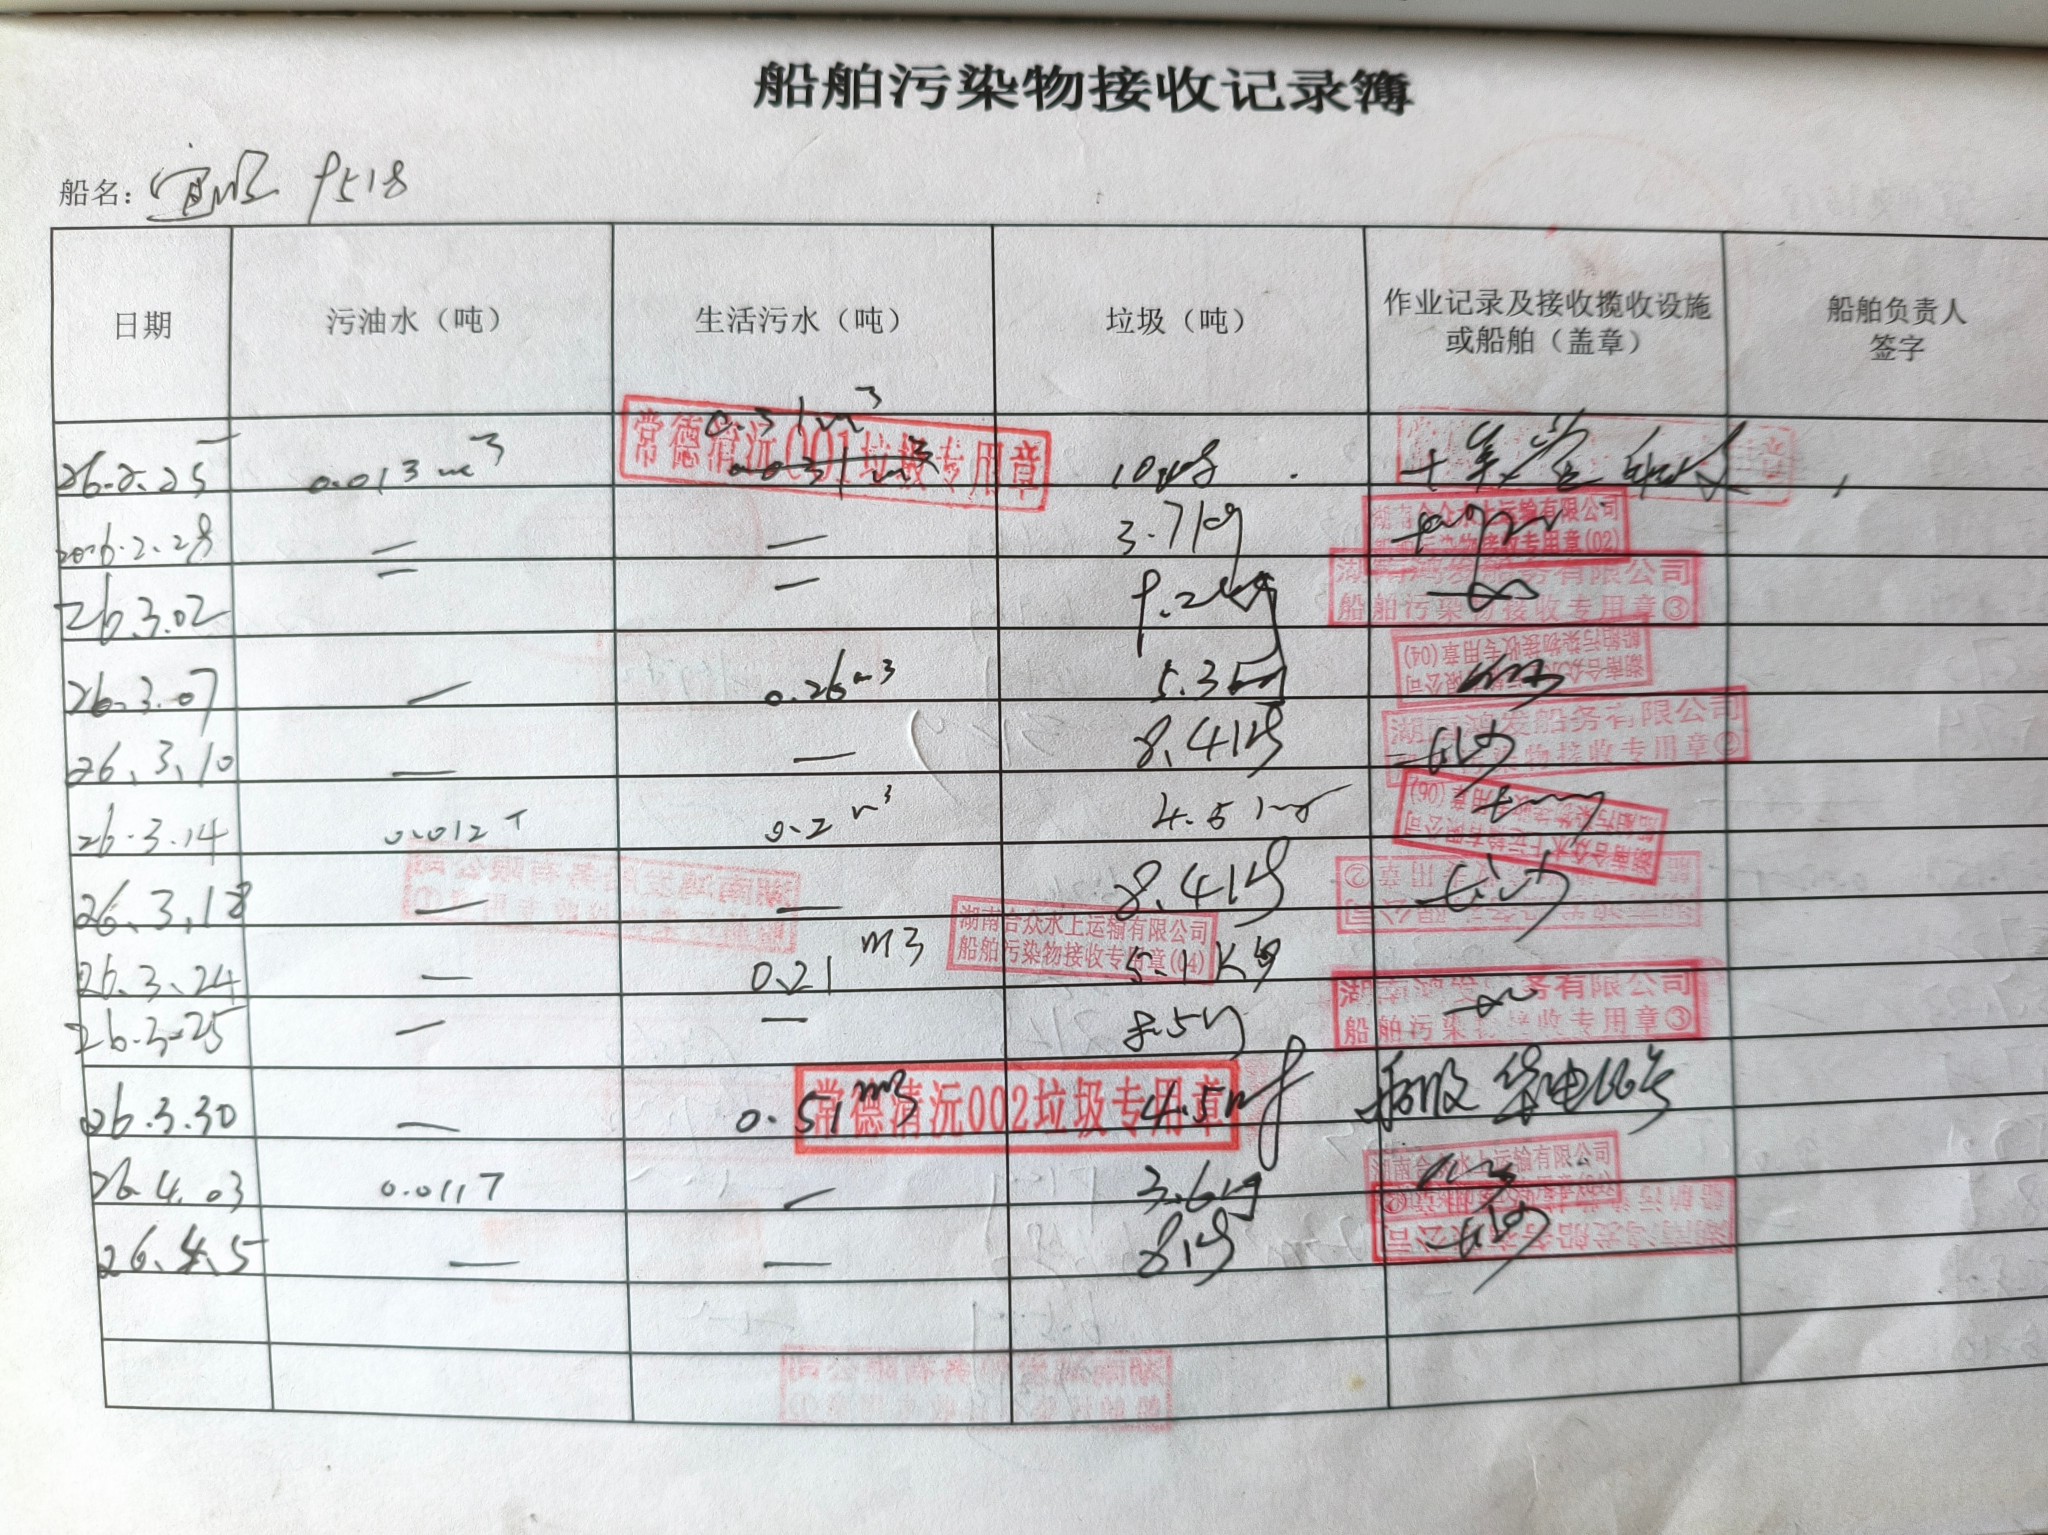 船舶污染物接收记录簿
船名：宜顺 9518
日期 污油水（吨） 生活污水（吨） 垃圾（吨） 作业记录及接收揽收设施或船舶（盖章） 船舶负责人签字
26.2.25 0.013m³ 0.31m³ 10kg
常德清沅001垃圾专用章
2026.2.28 — — 3.7kg
湖南合众水上运输有限公司
船舶污染物接收专用章(02)
26.3.02 — — 9.2kg
湖南鸿发船务有限公司
船舶污染物接收专用章③
26.3.07 — 0.26m³ 5.3kg
湖南合众水上运输有限公司
船舶污染物接收专用章(04)
26.3.10 — — 8.4kg
湖南鸿发船务有限公司
船舶污染物接收专用章②
26.3.14 0.012T 0.2m³ 4.5kg
湖南合众水上运输有限公司
船舶污染物接收专用章(06)
26.3.18 — — 8.4kg
26.3.24 — 0.21m3 5.1Kg
湖南合众水上运输有限公司
船舶污染物接收专用章(04)
26.3.25 — — 8.5kg
湖南鸿发船务有限公司
船舶污染物接收专用章③
26.3.30 — 0.51m3 4.5kg
常德清沅002垃圾专用章
26.4.03 0.011T — 3.6kg
湖南合众水上运输有限公司
26.4.5 — — 8kg